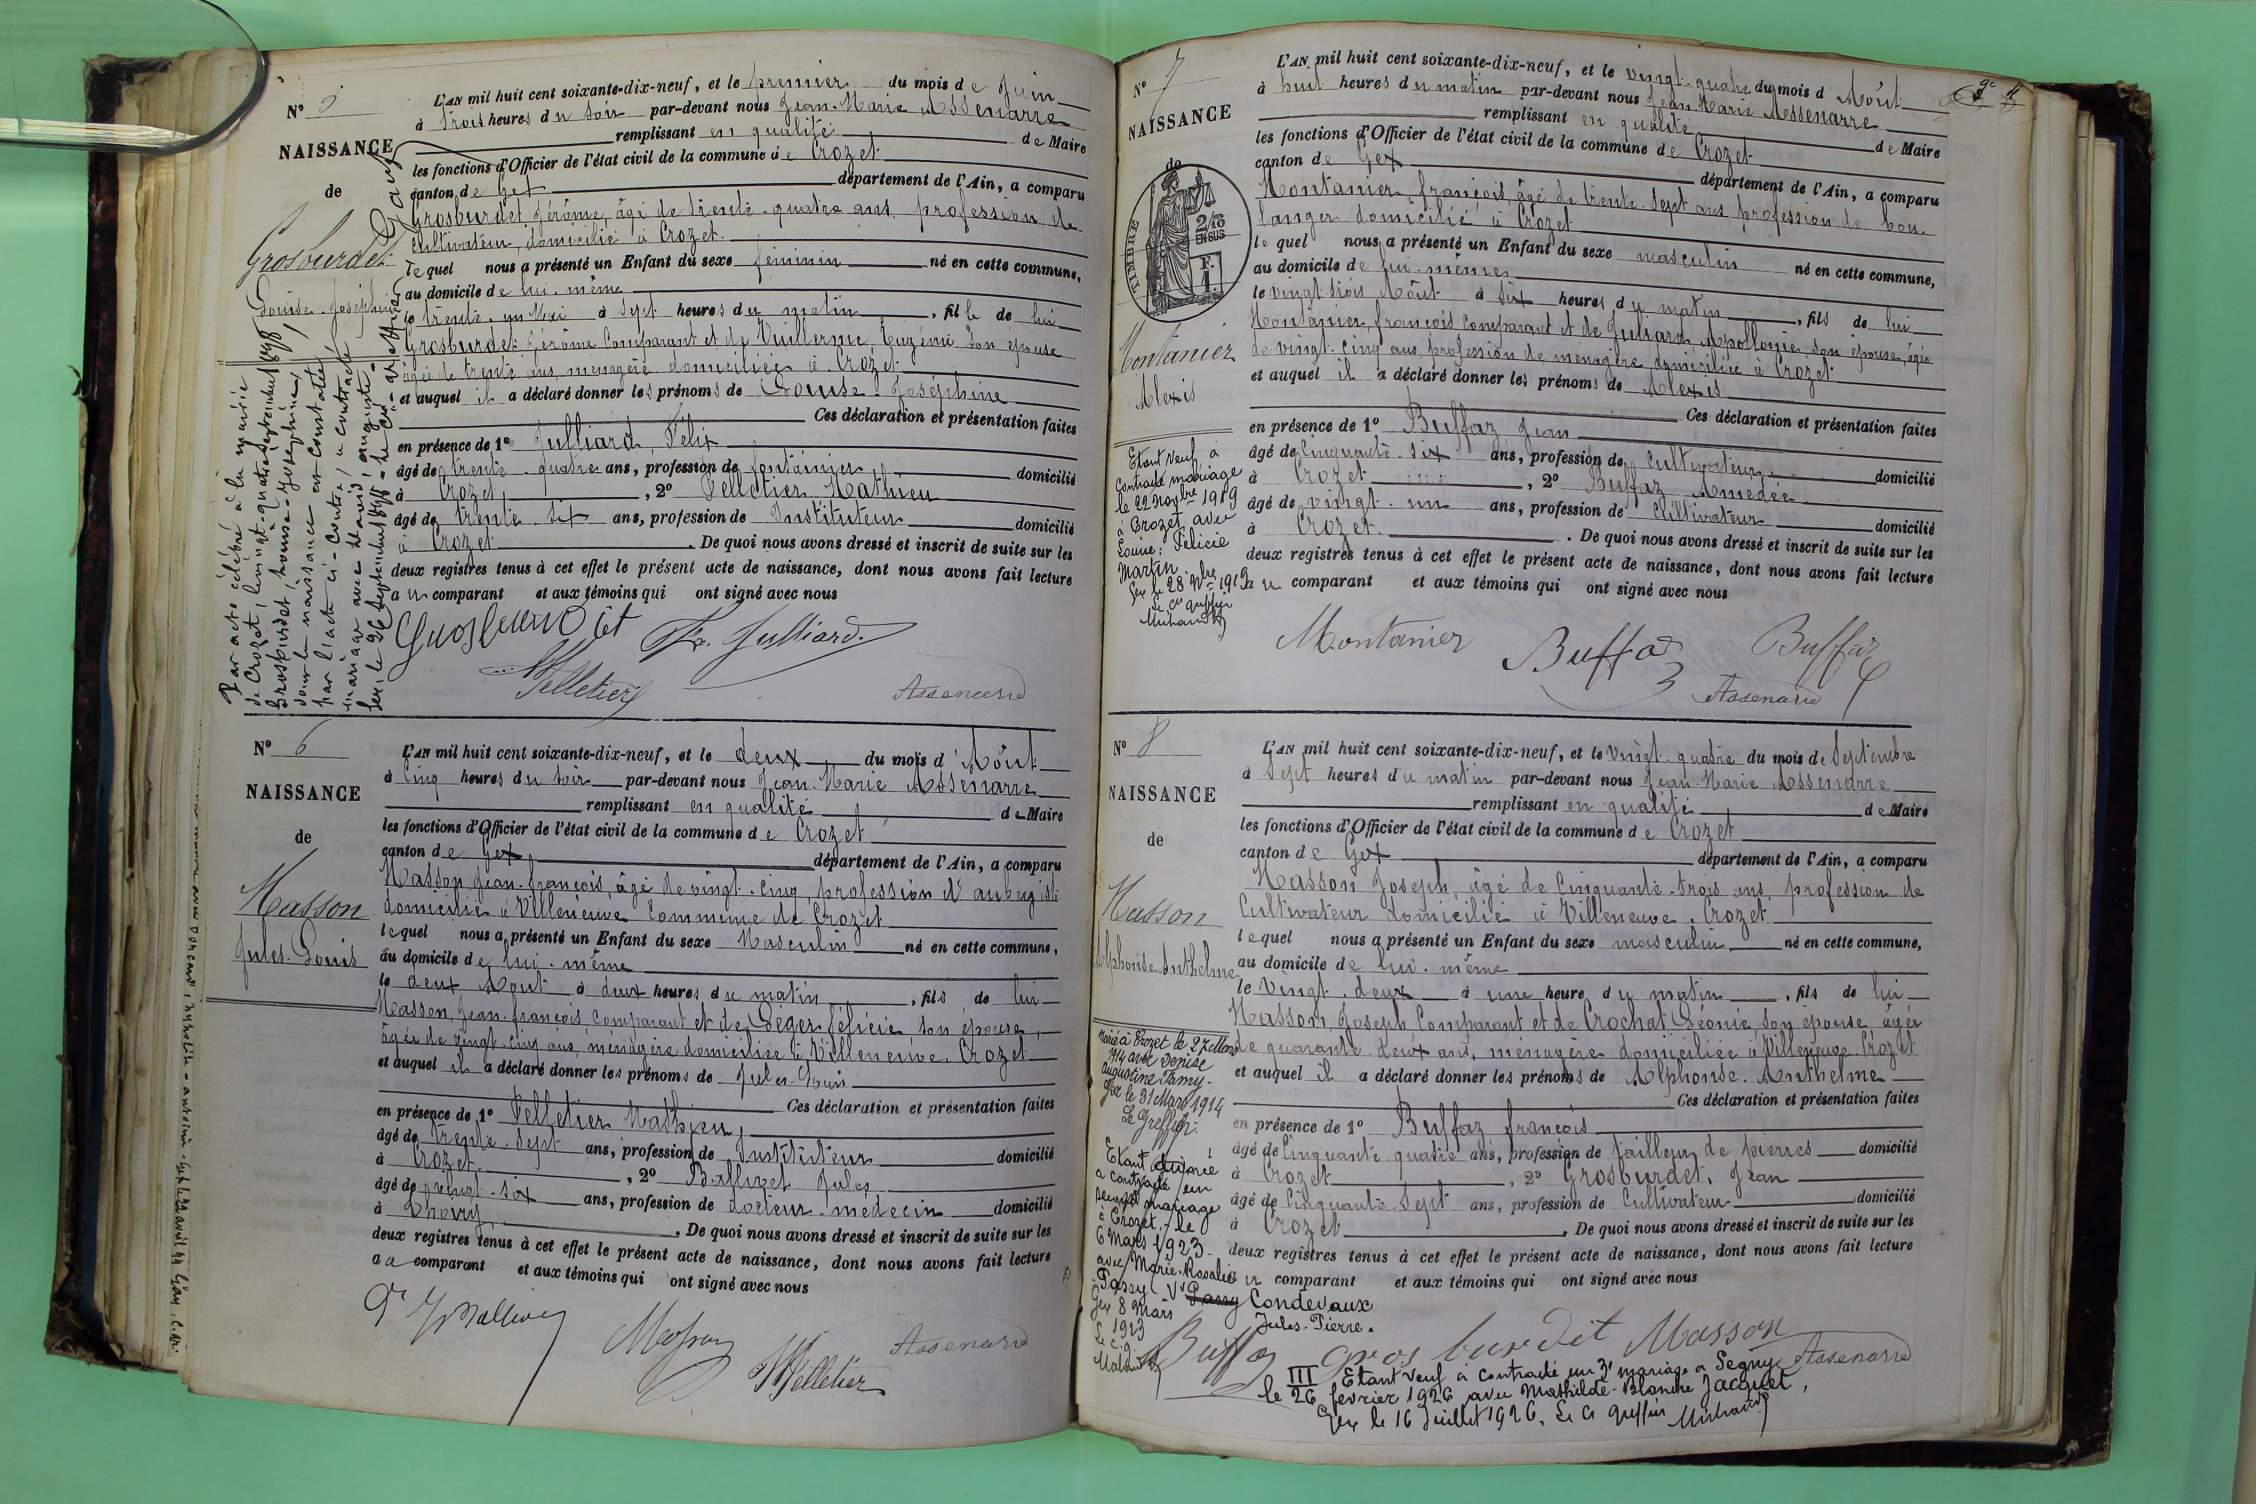 N° 5
NAISSANCE
de
Grosburdet
Louise-Joséphine
Par acte célébré à la mairie
de Crozet, le vingt-quatre septembre 1898
Grosburdet, Louise-Joséphine,
dont la naissance est constatée
par l'acte ci-contre, a contracté
mariage avec
Gex, le 26 septembre 1898 - Le
L'AN mil huit cent soixante-dix-neuf, et le premier du mois de Juin
à trois heures du soir par-devant nous Jean-Marie Assenarre
remplissant en qualité de Maire
les fonctions d'Officier de l'état civil de la commune de Crozet
canton de Gex département de l'Ain, a comparu
Grosburdet Jérôme, âgé de trente-quatre ans, profession de
cultivateur, domicilié à Crozet.
lequel nous a présenté un Enfant du sexe féminin né en cette commune,
au domicile de lui-même
le trente-un Mai à sept heures du matin, fille de lui
Grosburdet Jérôme Comparant et de Vuillerme, Eugénie son épouse
âgée de trente ans, ménagère domiciliée à Crozet.
et auquel il a déclaré donner les prénoms de Louise-Joséphine
Ces déclaration et présentation faites
en présence de 1° Julliard, Félix
âgé de trente-quatre ans, profession de fontainier domicilié
à Crozet, 2° Pelletier Mathieu
âgé de trente-six ans, profession de Instituteur domicilié
à Crozet. De quoi nous avons dressé et inscrit de suite sur les
deux registres tenus à cet effet le présent acte de naissance, dont nous avons fait lecture
au comparant et aux témoins qui ont signé avec nous
Grosburdet Fx. Julliard.
Pelletier Assenarre
N° 6
NAISSANCE
de
Masson
Jules-Louis
L'AN mil huit cent soixante-dix-neuf, et le deux du mois d'Août
à Cinq heures du soir par-devant nous Jean-Marie Assenarre
remplissant en qualité de Maire
les fonctions d'Officier de l'état civil de la commune de Crozet
canton de Gex département de l'Ain, a comparu
Masson Jean-françois, âgé de vingt-cinq, profession d'aubergiste
domicilié à Villeneuve Commune de Crozet
lequel nous a présenté un Enfant du sexe Masculin né en cette commune,
au domicile de lui-même
le deux Août à deux heures du matin, fils de lui
Masson, Jean-françois, Comparant et de Léger félicie son épouse,
âgée de vingt-cinq ans, ménagère domiciliée à Villeneuve-Crozet
et auquel il a déclaré donner les prénoms de Jules-Louis
Ces déclaration et présentation faites
en présence de 1° Pelletier Mathieu,
âgé de trente-sept ans, profession de Instituteur domicilié
à Crozet, 2° Ballivet Jules
âgé de vingt-six ans, profession de docteur-médecin domicilié
à Thoiry. De quoi nous avons dressé et inscrit de suite sur les
deux registres tenus à cet effet le présent acte de naissance, dont nous avons fait lecture
au comparant et aux témoins qui ont signé avec nous
Dr Jy Ballivet Masson
Pelletier Assenarre
N° 7
NAISSANCE
de
TIMBRE
2/10
EN SUS
F.
1.
Montanier
Alexis
Etant veuf à
contracté mariage
le 22 Novbre 1919
à Crozet avec
Louise: Félicie
Martin
Gex le 28 Nbre 1919
Le cis greffier
L'AN mil huit cent soixante-dix-neuf, et le vingt-quatre du mois d Août
à huit heures du matin par-devant nous Jean-Marie Assenarre
remplissant en qualité de Maire
les fonctions d'Officier de l'état civil de la commune de Crozet
canton de Gex département de l'Ain, a comparu
Montanier, françois, âgé de trente-sept ans profession de bou-
langer domicilié à Crozet
lequel nous a présenté un Enfant du sexe masculin né en cette commune,
au domicile de lui-même
le vingt trois Août à six heures du matin, fils de lui
Montanier, françois Comparant et de Julliard Apollonie, son épouse, âgée
de vingt-cinq ans, profession de ménagère, domiciliée à Crozet
et auquel il a déclaré donner les prénoms de Alexis
Ces déclaration et présentation faites
en présence de 1° Buffaz Jean
âgé de Cinquante-six ans, profession de Cultivateur domicilié
à Crozet, 2° Buffaz Amédée
âgé de vingt-un ans, profession de Cultivateur domicilié
à Crozet. De quoi nous avons dressé et inscrit de suite sur les
deux registres tenus à cet effet le présent acte de naissance, dont nous avons fait lecture
au comparant et aux témoins qui ont signé avec nous
Montanier Buffaz Buffaz
Assenarre
N° 8
NAISSANCE
de
Masson
Alphonse-Anthelme
Marié à Crozet le 27 Mars
1914 avec Denise
Augustine Famy.
Gex le 31 Mars 1914
Le Greffier
Etant
a contracté un
second mariage
à Crozet, le
6 Mars 1923
avec Marie-Rosalie
Passy Ve Passy Condevaux
Jules-Pierre.
Gex 8 Mars
1923
L'AN mil huit cent soixante-dix-neuf, et le vingt-quatre du mois de Septembre
à sept heures du matin par-devant nous Jean-Marie Assenarre
remplissant en qualité de Maire
les fonctions d'Officier de l'état civil de la commune de Crozet
canton de Gex département de l'Ain, a comparu
Masson Joseph, âgé de Cinquante-trois ans, profession de
Cultivateur domicilié à Villeneuve, Crozet
lequel nous a présenté un Enfant du sexe masculin né en cette commune,
au domicile de lui-même
le vingt-deux à une heure du matin, fils de lui
Masson, Joseph Comparant et de Crochat Léonie, son épouse âgée
de quarante-deux ans, ménagère domiciliée à Villeneuve-Crozet
et auquel il a déclaré donner les prénoms de Alphonse-Anthelme
Ces déclaration et présentation faites
en présence de 1° Buffaz françois
âgé de Cinquante-quatre ans, profession de tailleur de pierres domicilié
à Crozet, 2° Grosburdet, Jean
âgé de Cinquante-sept ans, profession de Cultivateur domicilié
à Crozet. De quoi nous avons dressé et inscrit de suite sur les
deux registres tenus à cet effet le présent acte de naissance, dont nous avons fait lecture
au comparant et aux témoins qui ont signé avec nous
Buffaz grosburdet Masson Assenarre
III Etant veuf a contracté un 3e mariage a Segny
le 26 février 1926 avec Mathilde-Blanche Jacquet,
Gex le 16 Juillet 1926, Le Cis greffier